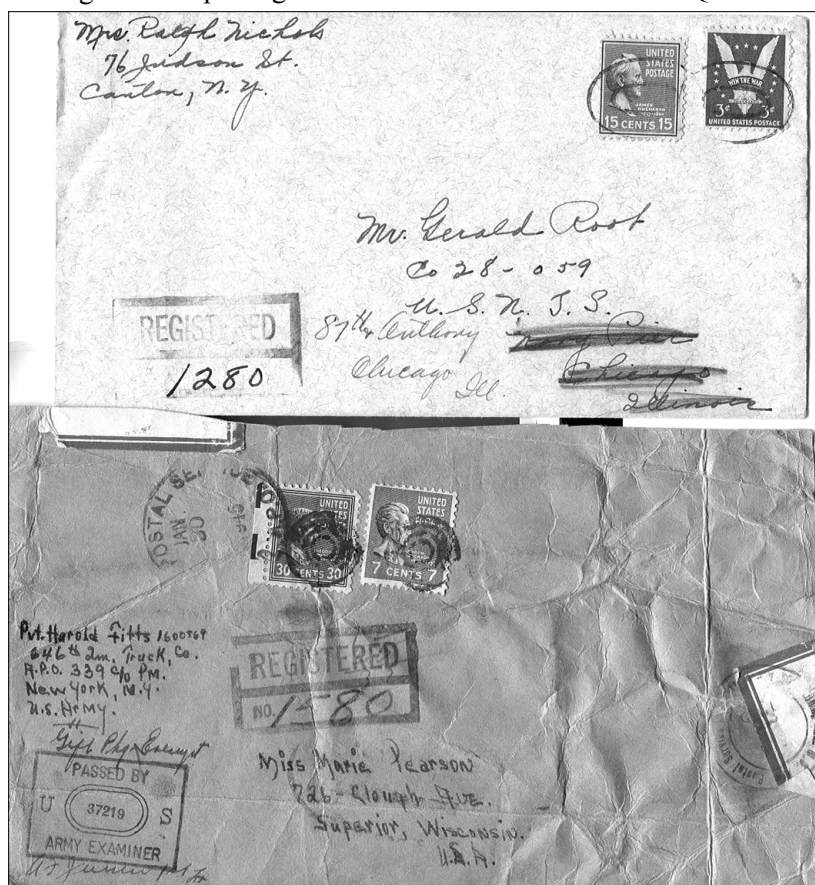 Mrs. Ralph Nichols
76 Judson St.
Canton, N.Y.
UNITED STATES POSTAGE
JAMES BUCHANAN
15 CENTS 15
WIN THE WAR
3¢ 3¢
UNITED STATES POSTAGE
Mr. Gerald Root
Co 28-059
U. S. N. T. S.
87th & Anthony Navy Pier
Chicago Chicago
Ill. Illinois
REGISTERED
1280
POSTAL SERVICE
JAN
20
UNITED STATES
30 CENTS 30
UNITED STATES
7 CENTS 7
Pvt. Harold Fitts
646th Qm. Truck, Co.
A.P.O. 339 c/o PM.
New York, N.Y.
U.S. Army.
REGISTERED
NO. 1580
Gift Pkg Exempt
PASSED BY
U 37219 S
ARMY EXAMINER
Miss Marie Pearson
726 - Clough Ave.
Superior, Wisconsin.
U.S.A.
Postal Service